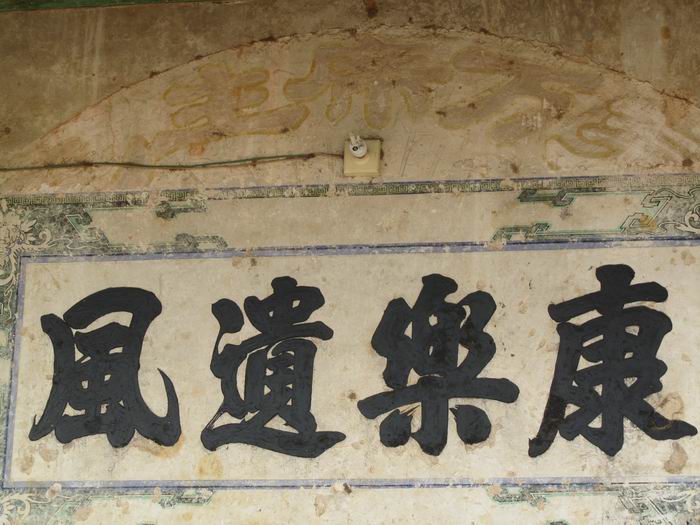 康樂遺風